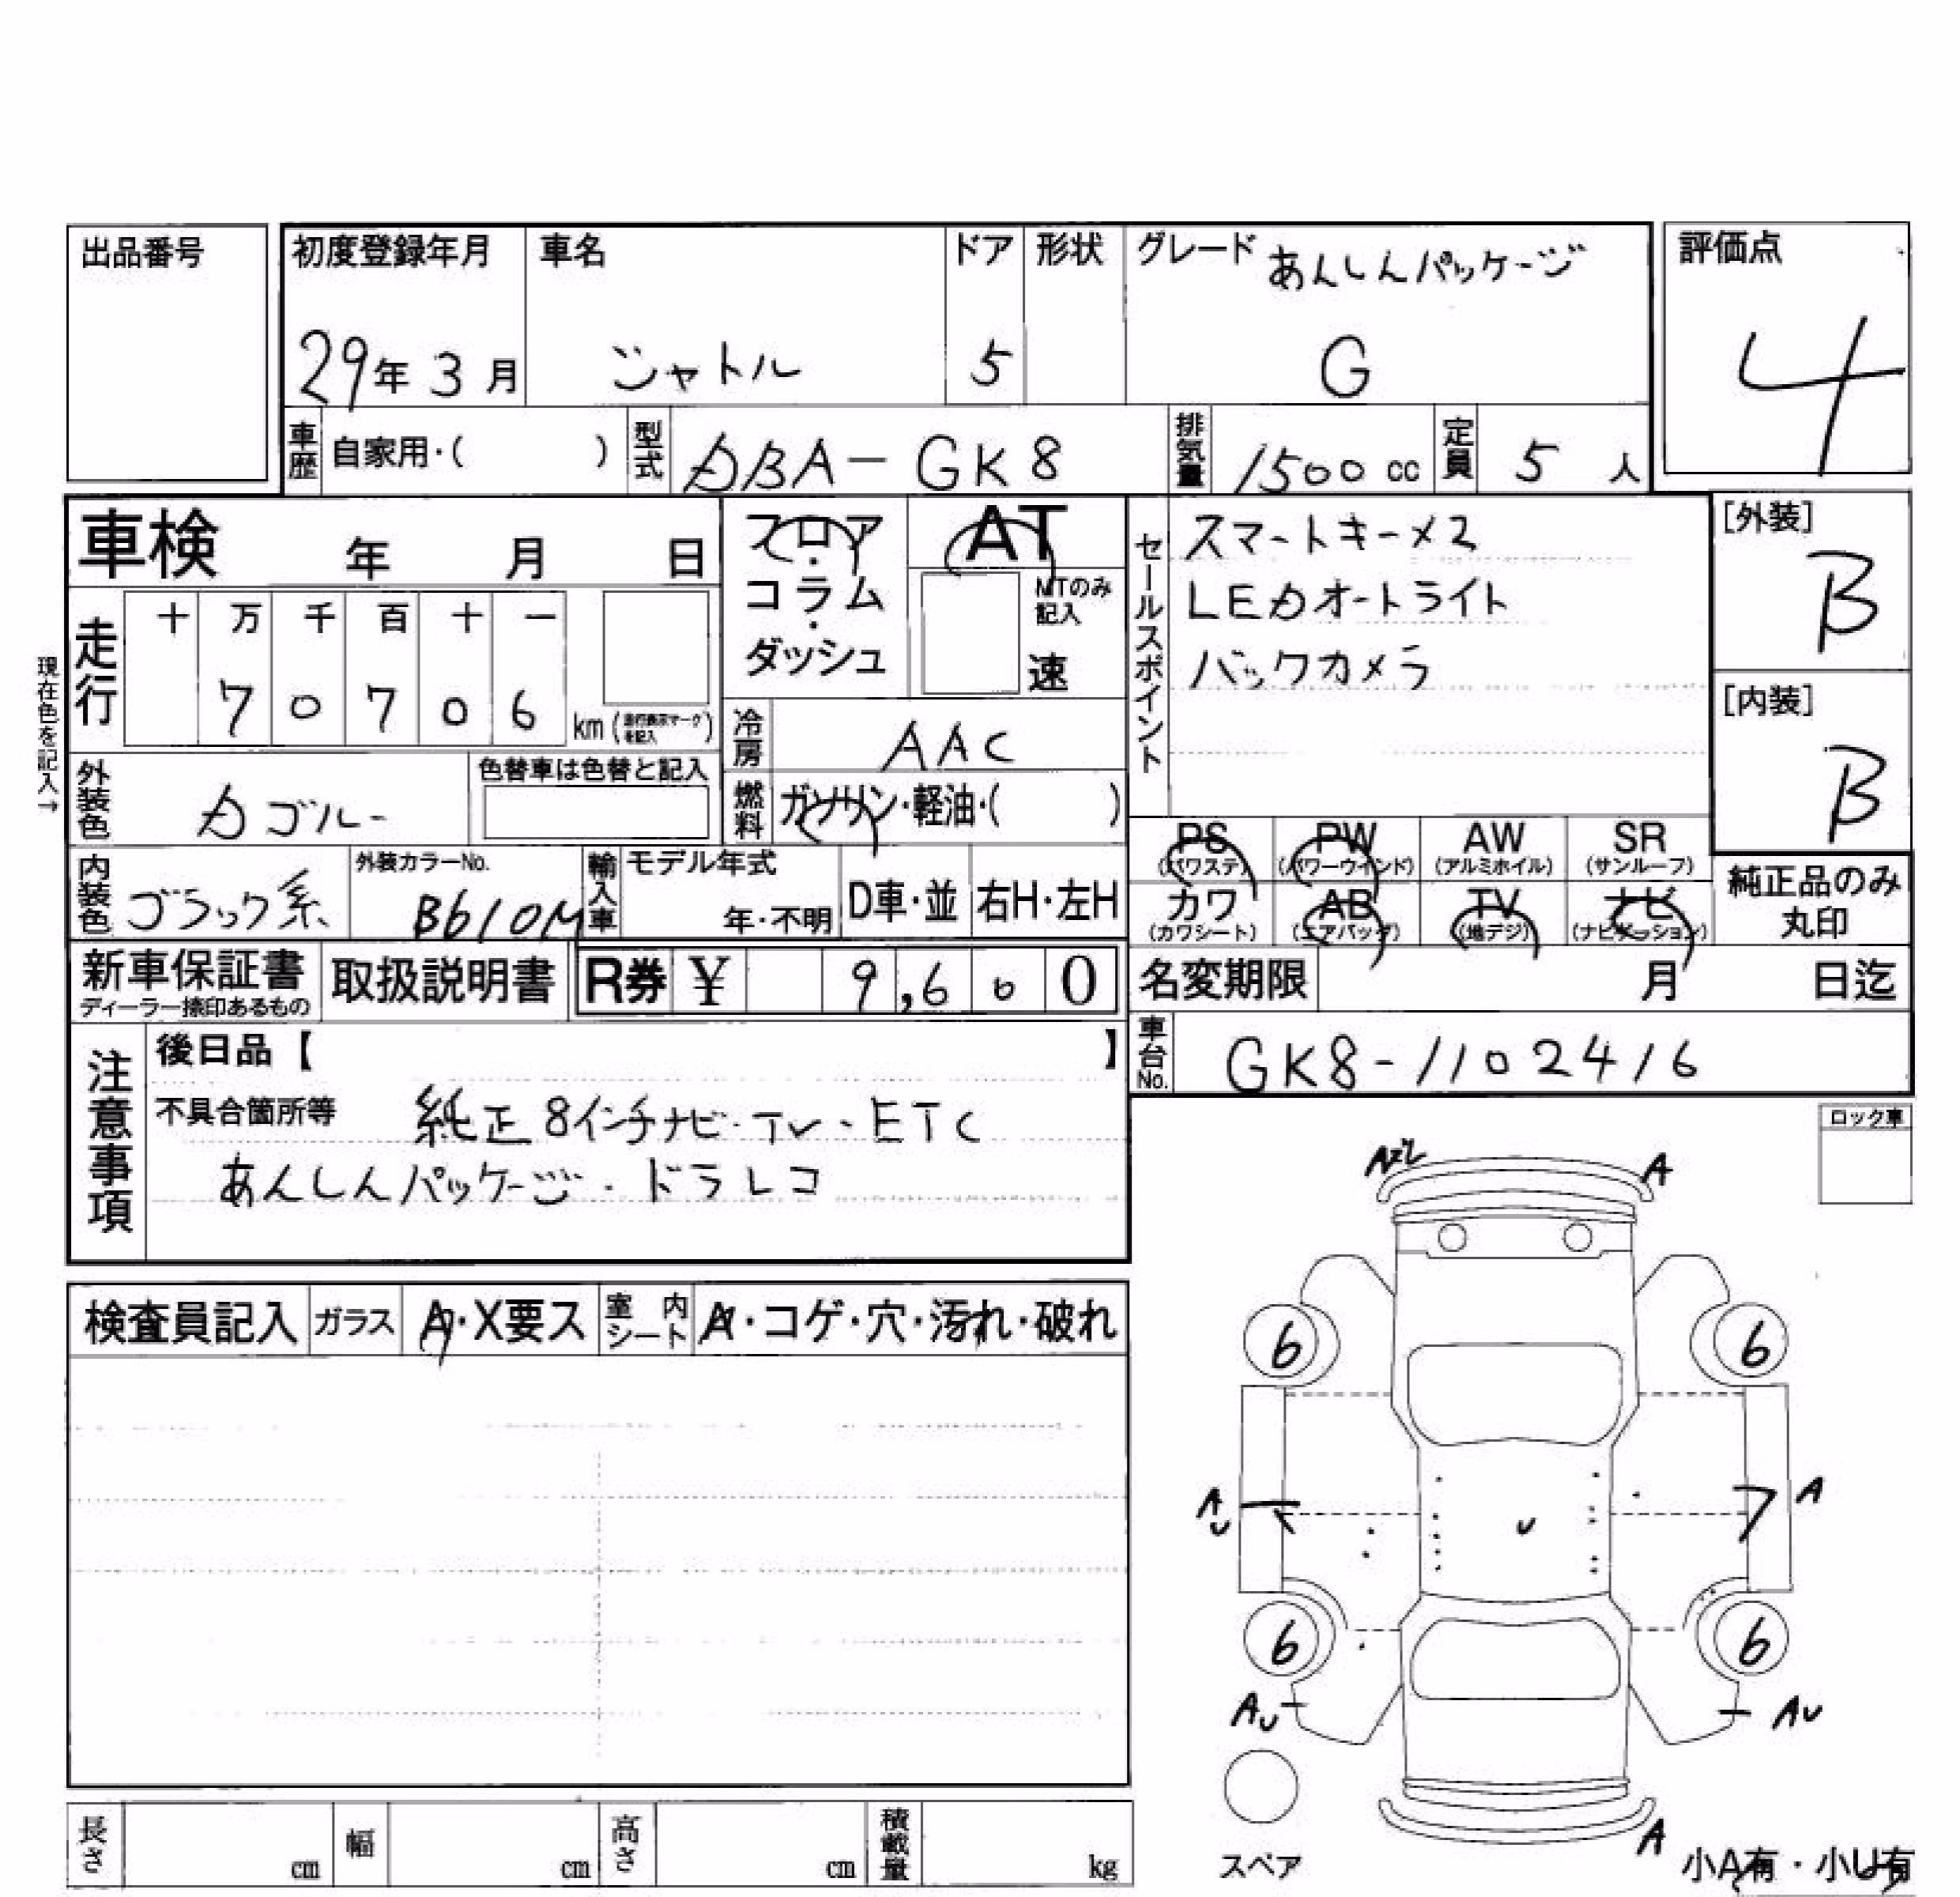 出品番号
初度登録年月 車名 ドア 形状 グレード あんしんパッケージ 評価点
29年 3月 シャトル 5 G 4
車歴 自家用・( ) 型式 DBA-GK8 排気量 1500 cc 定員 5 人
車検 年 月 日
フロア・コラム・ダッシュ
AT
MTのみ記入
速
セールスポイント
スマートキー×2
LEDオートライト
バックカメラ
[外装]
B
[内装]
B
現在色を記入→
走行 十 万 千 百 十 一
7 0 7 0 6 km (走行表示マークを記入)
冷房 AAC
外装色 Dブルー 色替車は色替と記入
燃料 ガソリン・軽油・( )
PS (パワステ) PW (パワーウインド) AW (アルミホイル) SR (サンルーフ)
カワ (カワシート) AB (エアバッグ) TV (地デジ) ナビ (ナビゲーション)
純正品のみ丸印
内装色 ブラック系 外装カラーNo. B610M 輸入車 モデル年式 年・不明 D車・並 右H・左H
新車保証書 ディーラー捺印あるもの 取扱説明書 R券 ¥ 9,600
名変期限 月 日迄
車台No. GK8-1102416
注意事項
後日品【 】
不具合箇所等 純正8インチナビ・TV・ETC
あんしんパッケージ・ドラレコ
ロック車
検査員記入 ガラス A・X要ス 室内シート A・コゲ・穴・汚れ・破れ
A
6 6
A
U
U
A
6 6
AU AU
スペア
A
小A有・小U有
長さ cm 幅 cm 高さ cm 積載量 kg